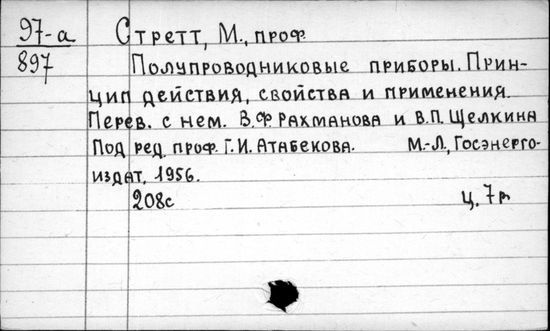 97-а
897
Стретт, М., проф.
Полупроводниковые приборы. Прин-
цип действия, свойства и применения.
Перев. с нем. В.Ф. Рахманова и В.П. Щелкина
Под ред. проф. Г.И. Атабекова. М.-Л., Госэнерго-
издат, 1956.
208с ц. 7р